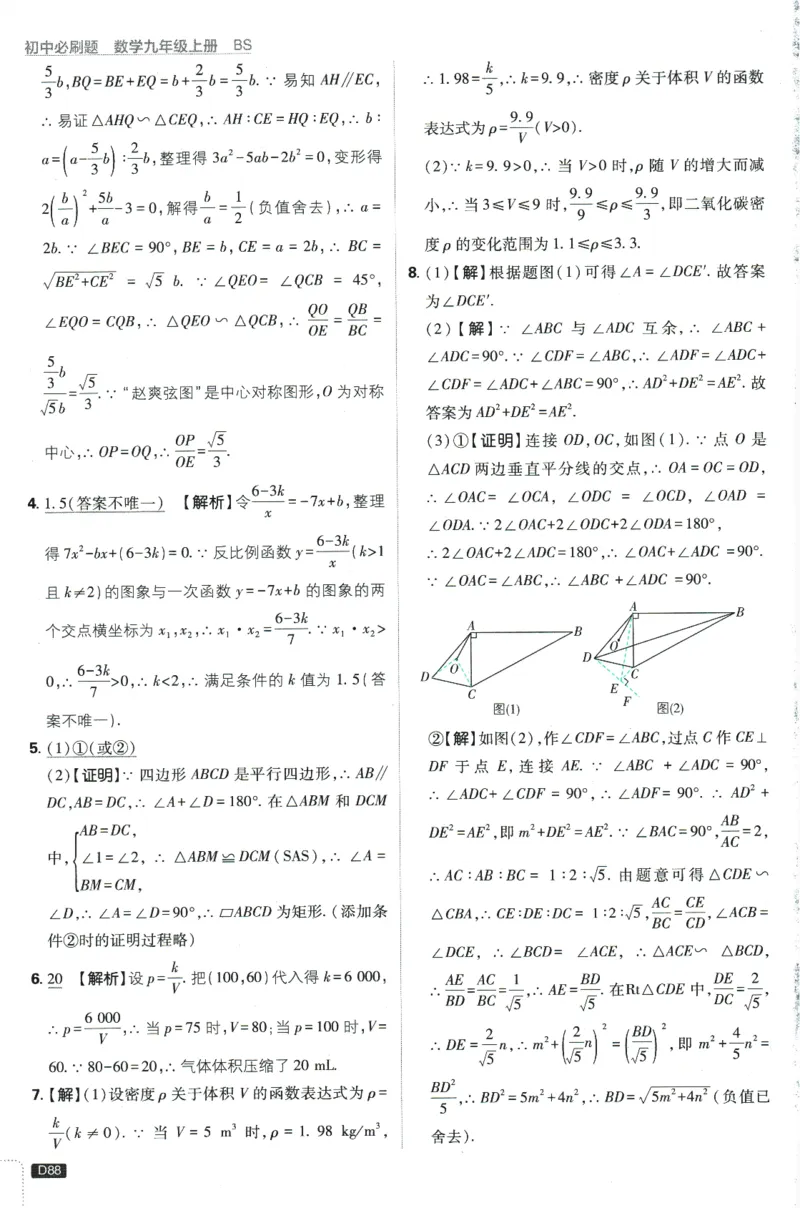 初中必刷题 数学九年级上册 BS
5/3 b,BQ=BE+EQ=b+2/3 b=5/3 b.∵ 易知 AH∥EC,
∴ 易证△AHQ∽△CEQ,∴ AH∶CE=HQ∶EQ,∴ b∶
a=(a-5/3 b)∶2/3 b,整理得 3a²-5ab-2b²=0,变形得
2(b/a)²+5b/a-3=0,解得 b/a=1/2(负值舍去),∴ a=
2b.∵ ∠BEC=90°,BE=b,CE=a=2b,∴ BC=
√(BE²+CE²)=√5 b.∵ ∠QEO=∠QCB=45°,
∠EQO=CQB,∴ △QEO∽△QCB,∴ QO/OE=QB/BC=
(5/3 b)/(√5b)=√5/3.∵ “赵爽弦图”是中心对称图形,O 为对称
中心,∴ OP=OQ,∴ OP/OE=√5/3.
4. 1.5(答案不唯一) 【解析】令 (6-3k)/x=-7x+b,整理
得 7x²-bx+(6-3k)=0.∵ 反比例函数 y=(6-3k)/x(k>1
且 k≠2)的图象与一次函数 y=-7x+b 的图象的两
个交点横坐标为 x₁,x₂,∴ x₁·x₂=(6-3k)/7.∵ x₁·x₂>
0,∴ (6-3k)/7>0,∴ k<2,∴ 满足条件的 k 值为 1.5(答
案不唯一).
5. (1)①(或②)
(2)【证明】∵ 四边形 ABCD 是平行四边形,∴ AB∥
DC,AB=DC,∴ ∠A+∠D=180°.在△ABM 和 DCM
中,{AB=DC,
∠1=∠2, ∴ △ABM≌DCM(SAS),∴ ∠A=
BM=CM,
∠D,∴ ∠A=∠D=90°,∴ ▱ABCD 为矩形.(添加条
件②时的证明过程略)
6. 20 【解析】设 p=k/V.把(100,60)代入得 k=6 000,
∴ p=6 000/V,∴ 当 p=75 时,V=80;当 p=100 时,V=
60.∵ 80-60=20,∴ 气体体积压缩了 20 mL.
7.【解】(1)设密度 ρ 关于体积 V 的函数表达式为 ρ=
k/V(k≠0).∵ 当 V=5 m³ 时,ρ=1.98 kg/m³,
D88
∴ 1.98=k/5,∴ k=9.9,∴ 密度 ρ 关于体积 V 的函数
表达式为 ρ=9.9/V(V>0).
(2)∵ k=9.9>0,∴ 当 V>0 时,ρ 随 V 的增大而减
小,∴ 当 3≤V≤9 时,9.9/9≤ρ≤9.9/3,即二氧化碳密
度 ρ 的变化范围为 1.1≤ρ≤3.3.
8. (1)【解】根据题图(1)可得∠A=∠DCE′.故答案
为∠DCE′.
(2)【解】∵ ∠ABC 与 ∠ADC 互余,∴ ∠ABC+
∠ADC=90°.∵ ∠CDF=∠ABC,∴ ∠ADF=∠ADC+
∠CDF=∠ADC+∠ABC=90°,∴ AD²+DE²=AE².故
答案为 AD²+DE²=AE².
(3)①【证明】连接 OD,OC,如图(1).∵ 点 O 是
△ACD 两边垂直平分线的交点,∴ OA=OC=OD,
∴ ∠OAC=∠OCA,∠ODC=∠OCD,∠OAD=
∠ODA.∵ 2∠OAC+2∠ODC+2∠ODA=180°,
∴ 2∠OAC+2∠ADC=180°,∴ ∠OAC+∠ADC=90°.
∵ ∠OAC=∠ABC,∴ ∠ABC+∠ADC=90°.
A B D O C
图(1)
A B O D C E F
图(2)
②【解】如图(2),作∠CDF=∠ABC,过点 C 作 CE⊥
DF 于点 E,连接 AE.∵ ∠ABC+∠ADC=90°,
∴ ∠ADC+∠CDF=90°,∴ ∠ADF=90°.∴ AD²+
DE²=AE²,即 m²+DE²=AE².∵ ∠BAC=90°,AB/AC=2,
∴ AC∶AB∶BC=1∶2∶√5.由题意可得△CDE∽
△CBA,∴ CE∶DE∶DC=1∶2∶√5,AC/BC=CE/CD,∠ACB=
∠DCE,∴ ∠BCD=∠ACE,∴ △ACE∽△BCD,
∴ AE/BD=AC/BC=1/√5,∴ AE=BD/√5.在Rt△CDE 中,DE/DC=2/√5,
∴ DE=2/√5 n,∴ m²+(2/√5 n)²=(BD/√5)²,即 m²+4/5 n²=
BD²/5,∴ BD²=5m²+4n²,∴ BD=√(5m²+4n²)(负值已
舍去).